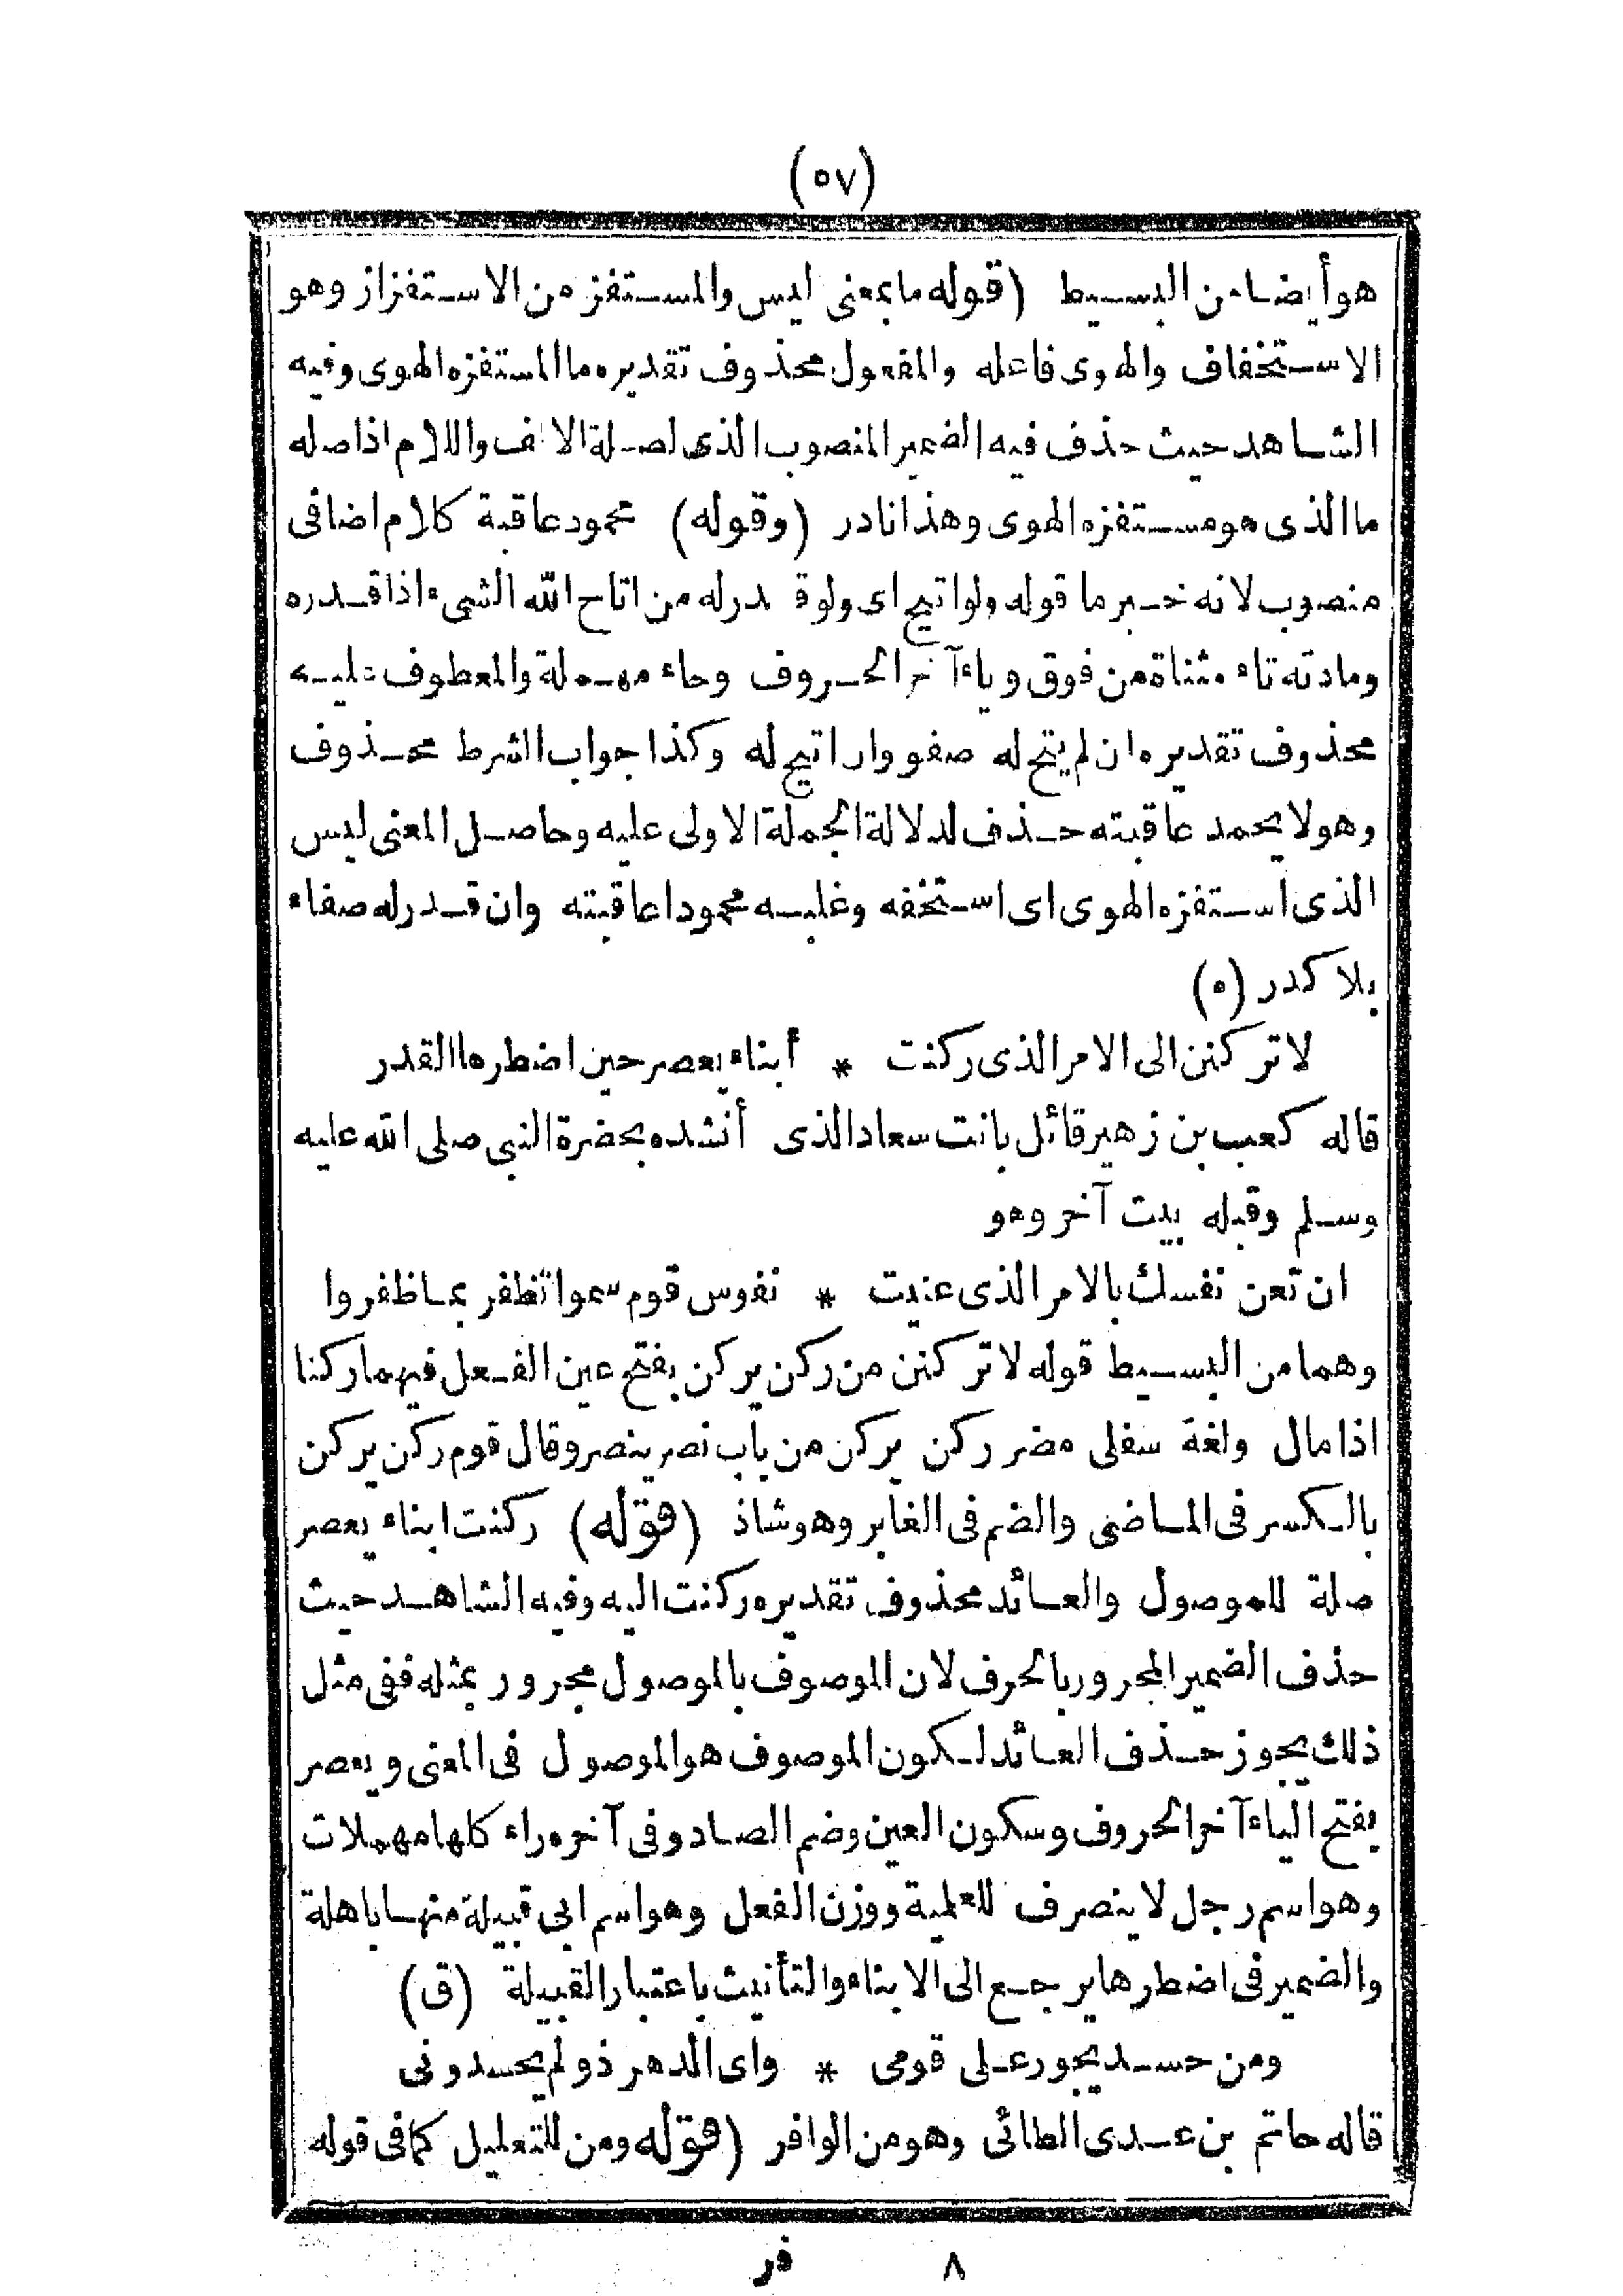 (٥٧)
هو أيضا من البسيط (قوله ما بمعنى ليس والمستفز من الاستفزاز وهو
الاستخفاف والهوى فاعله والمفعول محذوف تقديره ما المستفزه الهوى وفيه
الشاهد حيث حذف فيه الضمير المنصوب الذى لصلة الالف واللام اذا صله
ما الذى هو مستفزه الهوى وهذا نادر (وقوله) محمود عاقبة كلام اضافى
منصوب لانه خبر ما قوله ولو اتيح اى ولو قدر له من اتاح الله الشىء اذا قدره
ومادته تاء مثناة من فوق وياء آخر الحروف وحاء مهملة والمعطوف عليه
محذوف تقديره ان لم يتح له صفو وان اتيح له وكذا جواب الشرط محذوف
وهو لا يحمد عاقبته حذف لدلالة الجملة الاولى عليه وحاصل المعنى ليس
الذى استفزه الهوى اى استخفه وغلبه محمودا عاقبته وان قدر له صفاء
بلا كدر (ه)
لا تركنن الى الامر الذى ركنت * أبناء يعصر حين اضطرها القدر
قاله كعب بن زهير قائل بانت سعاد الذى أنشده بحضرة النبى صلى الله عليه
وسلم وقبله بيت آخر وهو
ان تعن نفسك بالامر الذى عنيت * نفوس قوم سموا تظفر بما ظفروا
وهما من البسيط قوله لا تركنن من ركن يركن بفتح عين الفعل فيهما ركنا
اذا مال ولغة سفلى مضر ركن يركن من باب نصر ينصر وقال قوم ركن يركن
بالكسر فى الماضى والضم فى الغابر وهو شاذ (قوله) ركنت ابناء يعصر
صلة للموصول والعائد محذوف تقديره ركنت اليه وفيه الشاهد حيث
حذف الضمير المجرور بالحرف لان الموصوف بالموصول مجرور بمثله ففى مثل
ذلك يجوز حذف العائد لكون الموصوف هو الموصول فى المعنى ويعصر
بفتح الياء آخر الحروف وسكون العين وضم الصاد وفى آخره راء كلها مهملات
وهو اسم رجل لا ينصرف للعلمية ووزن الفعل وهو اسم ابى قبيلة منها باهلة
والضمير فى اضطرها يرجع الى الابناء والتأنيث باعتبار القبيلة (ق)
ومن حسد يجور على قومى * واى الدهر ذو لم يحسدونى
قاله حاتم بن عدى الطائى وهو من الوافر (قوله ومن للتعليل كما فى قوله
٨ فر